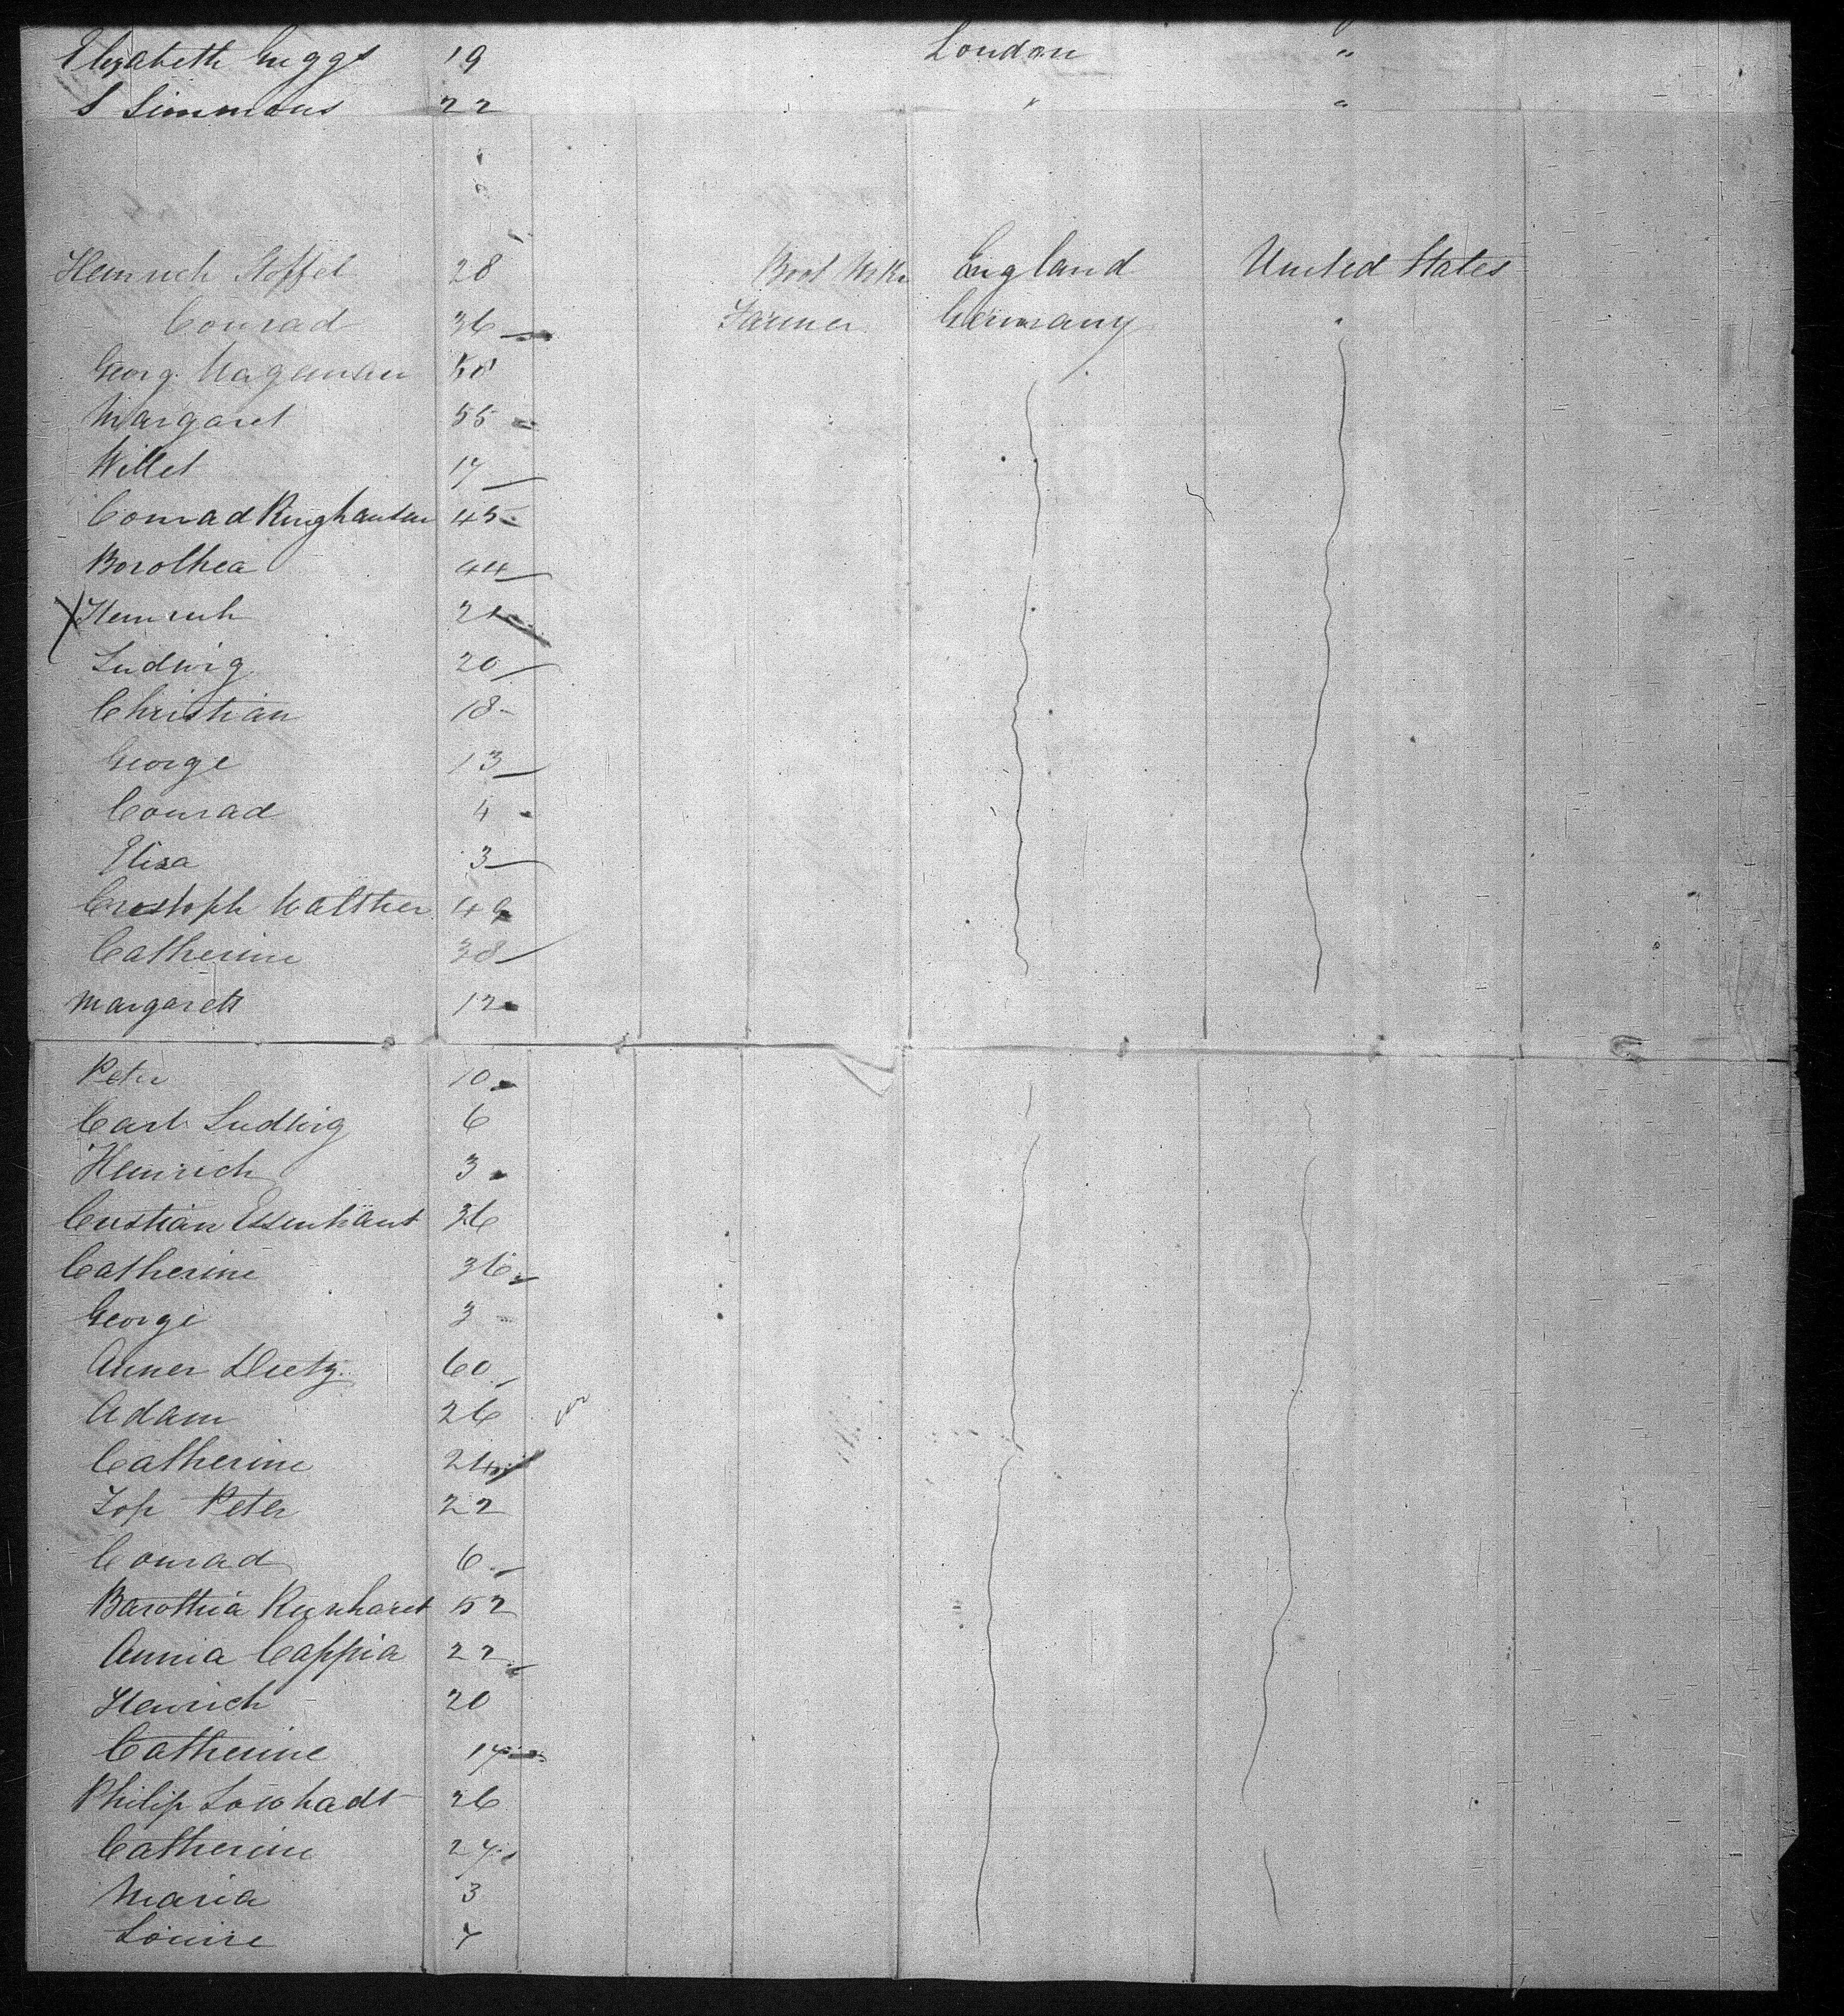 Elizabeth Griggs 19 London "
S Simmons 22 " "
Heinrich Stoffel 28 Boot Mkr England United States
Conrad 36 Farmer Germany "
Georg. Wageman 58
Margaret 55
Willet 17
Conrad Ringhausen 45
Borothea 44
Heinrich 21
Ludwig 20
Christian 18
George 13
Conrad 4
Eliza 3
Crestoph Walther 49
Catherine 38
Margareth 12
Peter 10
Carl Ludwig 6
Heinrich 3
Cristian Essenhaut 36
Catherine 36
George 3
Anner Dietz 60
Adam 26
Catherine 24
Joh Peter 22
Conrad 6
Barothia Reinhardt 52
Annia Cappia 22
Henrich 20
Catherine 17
Philip 26
Catherine 27
Maria 3
Louise 7